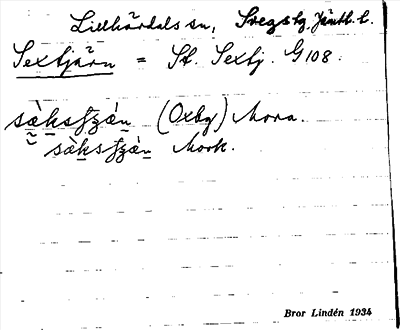 Lillhärdals sn, Svegs tg. Jämtl. l.
Sextjärn = St. Sextj. G 108.
sàksʃʒán (Oxbg) Mora.
sàksʃʒán Mork.
Bror Lindén 1934